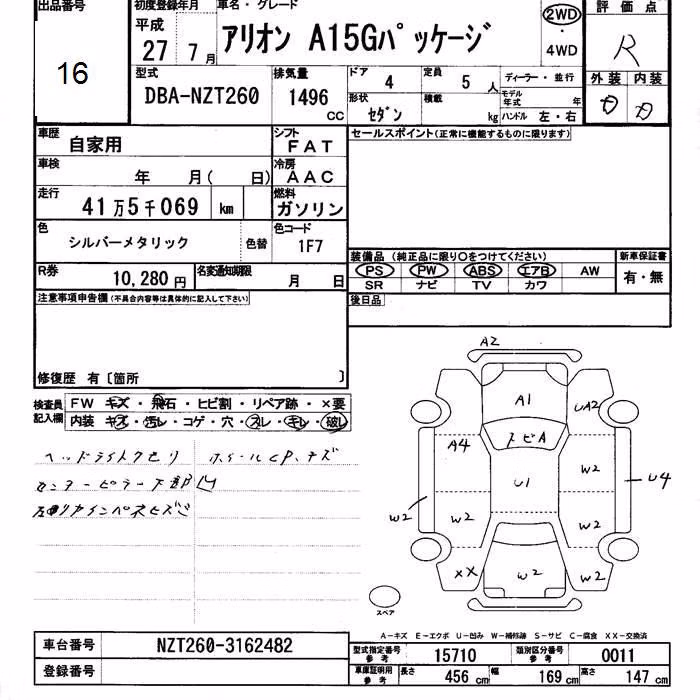 出品番号
16
初度登録年月
平成
27年7月
車名・グレード
アリオン A15Gパッケージ
2WD
・
4WD
評価点
R
型式
DBA-NZT260
排気量
1496
CC
ドア
4
定員
5人
ディーラー・並行
形状
セダン
積載
kg
モデル年式 年
ハンドル 左・右
外装 内装
車歴
自家用
シフト
FAT
セールスポイント(正常に機能するものに限ります)
車検
年 月( 日)
冷房
AAC
走行
41万5千069 km
燃料
ガソリン
色
シルバーメタリック
色替
色コード
1F7
装備品(純正品に限り○をつけてください)
新車保証書
PS PW ABS エアB AW
SR ナビ TV カワ
有・無
R券
10,280円
名変通知期限
月 日
後日品
注意事項申告欄(不具合内容等は具体的に記入して下さい)
修復歴 有〔箇所 〕
検査員記入欄
FW キズ・飛石・ヒビ割・リペア跡・×要
内装 キズ・汚レ・コゲ・穴・スレ・キレ・破レ
ヘッドライトクモリ
ホイールCP、キズ
センターピラー下部凹
A2
A1
UA2
A4
スビA
W2
U1
U4
W2
W2
W2
XX
W2
W2
スペア
A-キズ E-エクボ U-凹み W-補修跡 S-サビ C-腐食 XX-交換済
車台番号
NZT260-3162482
型式指定番号
参考
15710
類別区分番号
参考
0011
登録番号
車庫証明用
参考
長さ
456 cm
幅
169 cm
高さ
147 cm